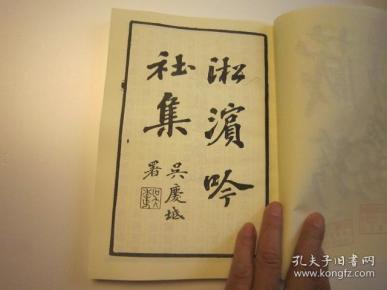 淞濱吟
社集
吳慶坻
署
孔夫子旧书网
book.kongfz.com